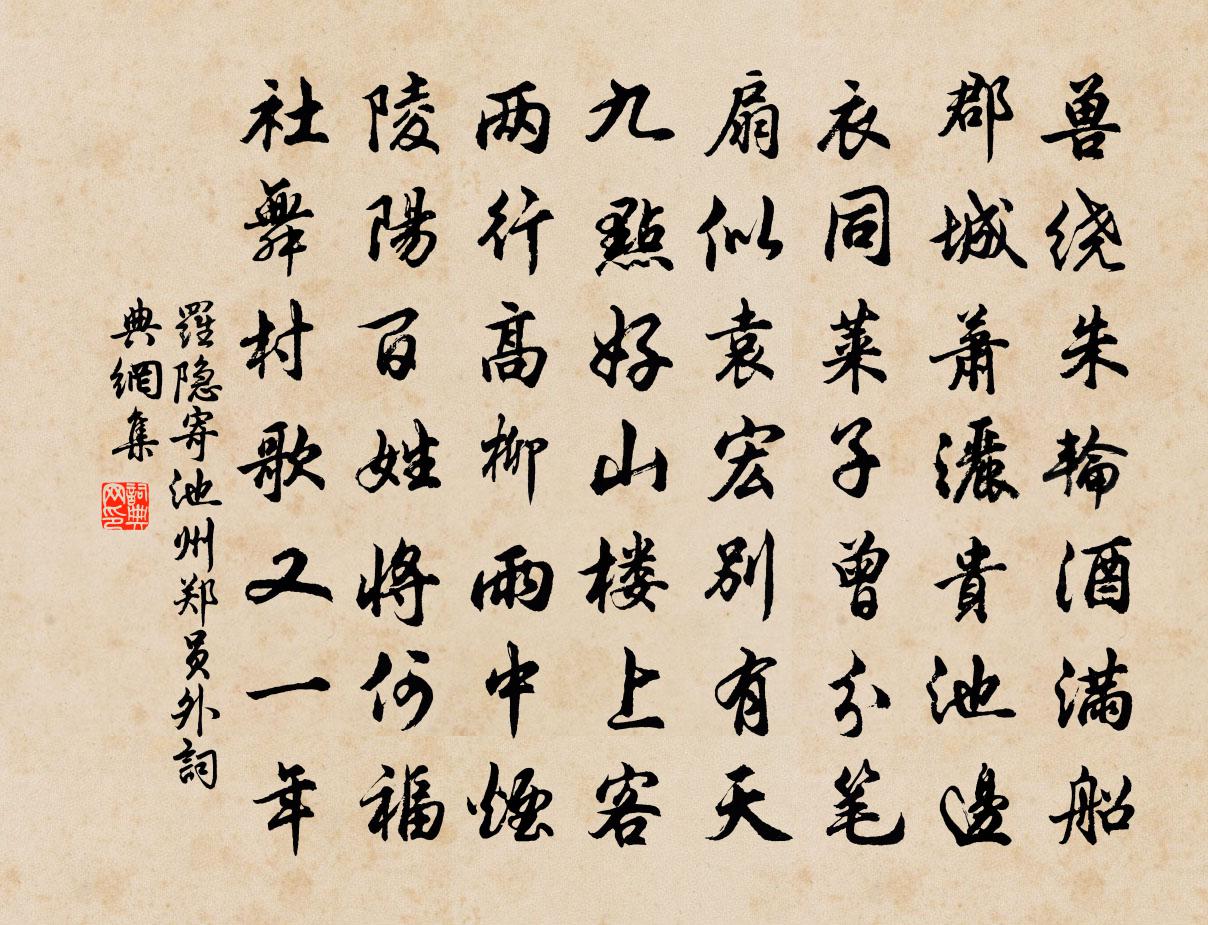 兽绕朱轮酒满船
郡城萧灑貴池邊
衣同莱子曾分笔
扇似袁宏别有天
九點好山楼上客
两行高柳雨中煙
陵陽百姓将何福
社舞村歌又一年
羅隐寄池州郑员外詞
典網集
詞典
网印